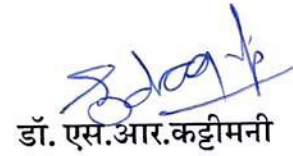 डॉ. एस.आर.कट्टीमनी